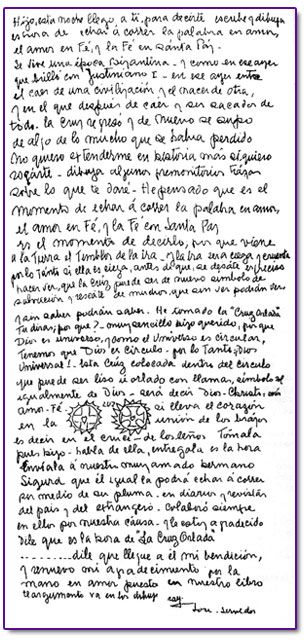 Hijo, esta noche llego a ti, para decirte escribe y dibuja
es hora de echar á correr la palabra en amor,
el amor en Fé, y la Fé en Santa Paz.
Se vive una época Bizantina - y como en ese ayer
que brilló con Justiniano I - en ese ayer entre
el caer de una civilización y el nacer de otra,
y en el que después de caer y ser sacador de
todo. la Cruz regresó y de nuevo se supo
de algo de lo mucho que se habia perdido
No quiero extenderme en historia más si quiero
rogarte - dibuja algunos premonitorios
sobre lo que te daré - He pensado que es el
momento de echar á correr la palabra en amor,
el amor en Fé, y la Fé con Santa Paz
es el momento de decirlo, por que viene
a la Tierra el Temblor de la ira - y la ira será ciega y cruenta
por lo tanto si ella es ciega, antes de que se desate es preciso
hacer ver, que la Cruz puede ser de nuevo simbolo de
salvación y rescate de muchos, que aun ver podrán ver
y aun saber podrán saber. He tomado la "Cruz Orlada"
Tu diras, por que? - muy sencillo hijo querido, por que
Dios es universo, y como el Universo es circular,
Tenemos que Dios es circulo - por lo tanto, Dios
Universal! - Esta Cruz colocada dentro del circulo
que puede ser liso ú orlado con llamas, simbolo es
igualmente de Dios - será decir Dios - Christo, en
amor - Fé. si lleva el corazón
en la unión de los brazos
es decir en el cruce - de los leños Tómala
pues hijo - habla de ella, entregala es la hora
Enviala á nuestro muy amado hermano
Sigurd que él igual la podrá echar á correr
por medio de su pluma - en diarios y revistas
del pais y del extrangero - Colaboró siempre
en ellos por nuestra causa - y le estoy agradecido
Dile que es la hora de "La Cruz Orlada"
.......... dile que llegue a él mi bendición,
y renuevo mi agradecimiento por la
mano en amor puesta en nuestro libro
el argumento va en los dibujos
soy